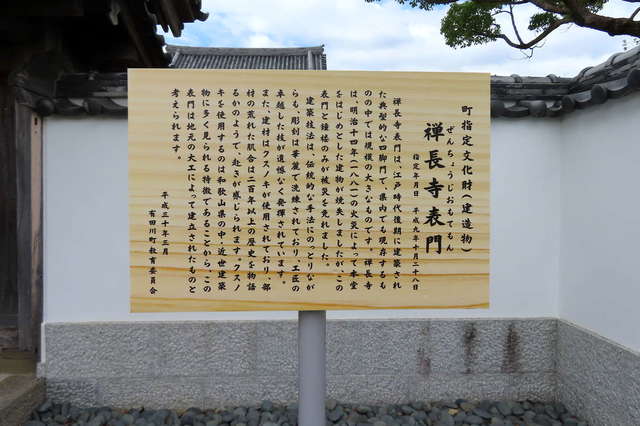 町指定文化財(建造物)
ぜんちょうじおもてもん
禅長寺表門
指定年月日 平成九年十月二十八日
禅長寺表門は、江戸時代後期に建築され
た典型的な四脚門で、県内でも現存するも
のの中では規模の大きなものです。禅長寺
は、明治十四年(一八八一)の火災によって本堂
をはじめとした建物が焼失しましたが、この
表門と鐘楼のみが被災を免れました。
建築技法は、伝統的な手法にのっとりなが
らも、彫刻は華麗で洗練されており、工匠の
卓越した技が遺憾なく発揮されています。
また、建材はクスノキが使用されており、部
材の荒れた肌合は二百年以上の歴史を物語
るかのようで、趣きが感じられます。クスノ
キを使用するのは和歌山県の中・近世建築
物に多く見られる特徴であることから、この
表門は地元の大工によって建立されたものと
考えられます。
平成三十年三月
有田川町教育委員会